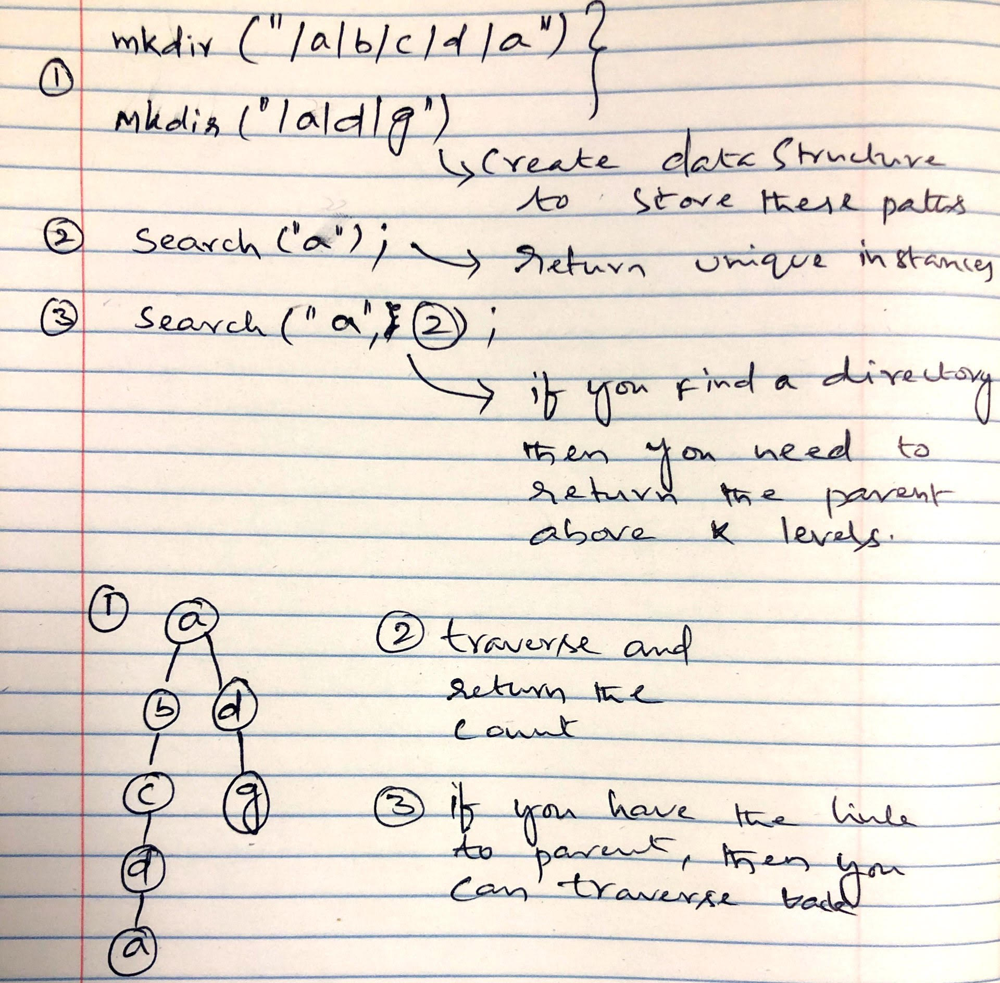 mkdir ("/a/b/c/d/a") }
①
mkdir ("/a/d/g")
↳ Create data Structure
to store these paths
② Search ("a"); → return unique instances
③ Search ("a", ②);
→ if you find a directory
then you need to
return the parent
above k levels.
① a
② traverse and
return the
count
b d
c g
③ if you have the link
to parent, then you
can traverse back
d
a